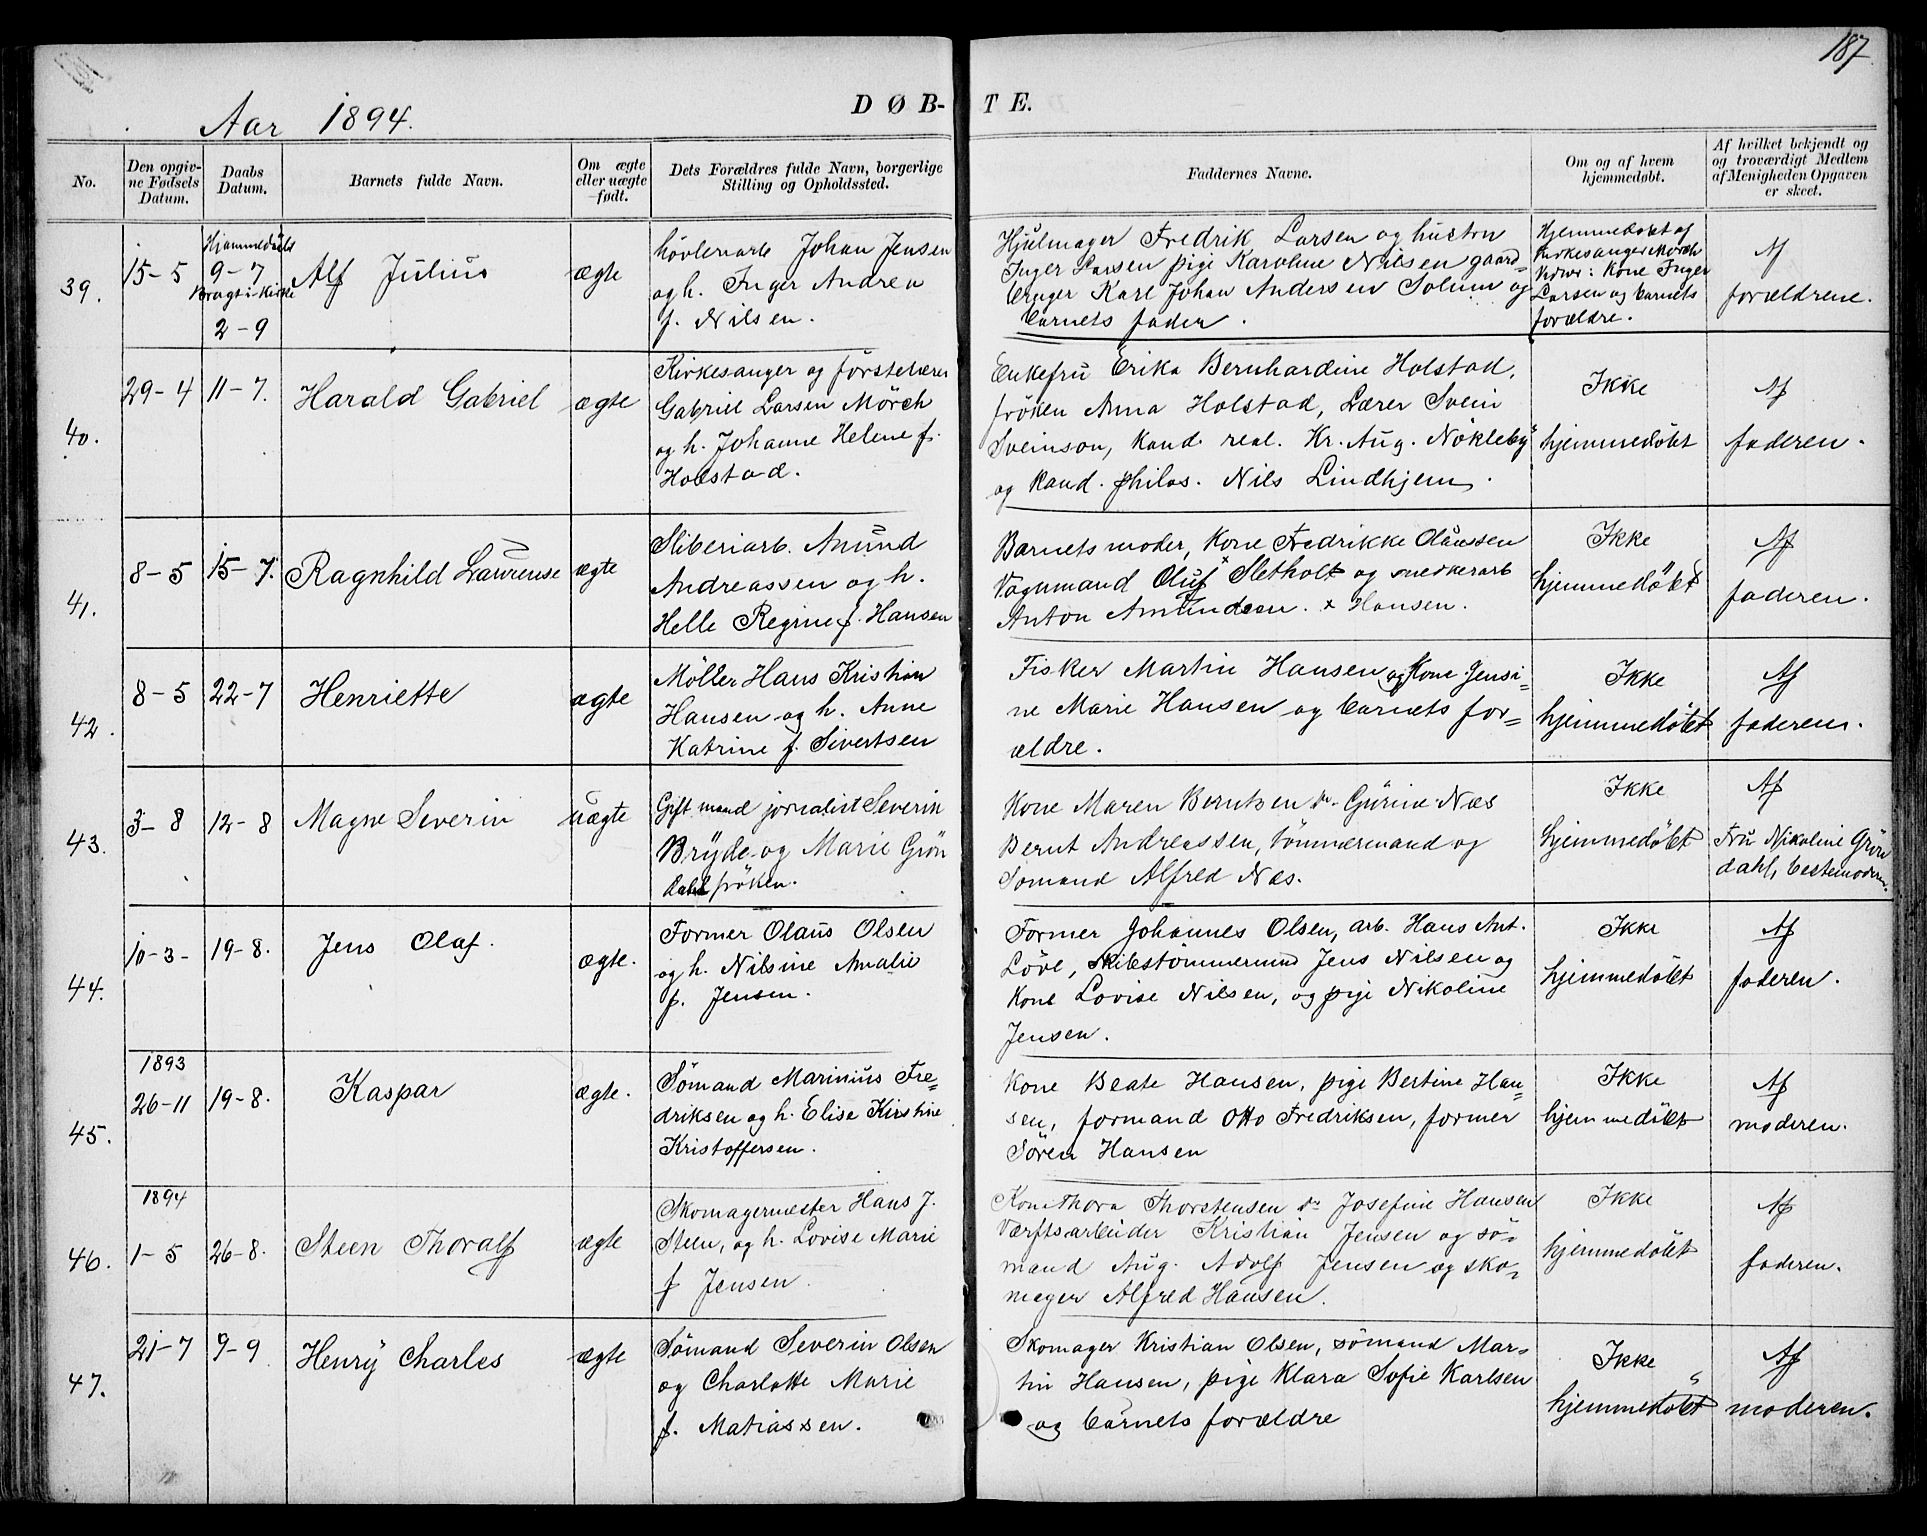 187
Aar 1894.
DØB-TE.
No.
Den opgiv-
ne Fødsels
Datum.
Daabs
Datum.
Barnets fulde Navn.
Om ægte
eller uægte
født.
Dets Forældres fulde Navn, borgerlige
Stilling og Opholdssted.
Faddernes Navne.
Om og af hvem
hjemmedøbt.
Af hvilket bekjendt og
og troværdigt Medlem
af Menigheden Opgaven
er skeet.
39.
15-5
Hjemmedøbt
9-7
Bragt i Kirke
2-9
Alf Julius
ægte
høvleriarb Johan Jensen
og h. Inger Andrea
f. Nilsen.
Hjulmager Fredrik Larsen og hustru
Inger Larsen pige Karoline Nilsen gaard-
bruger Karl Johan Andersen Solum og
barnets fader.
Hjemmedøbt af
Kirkesanger Mørch
Kone Inger
Larsen og barnets
forældre.
Af
forældrene.
40.
29-4
11-7.
Harald Gabriel
ægte
Kirkesanger og førstelærer
Gabriel Larsen Mörch
og h. Johanne Helene f.
Holstad.
Enkefru Erika Bernhardine Holstad,
fröken Anna Holstad, Lærer Svein
Sveinson, kand. real. Kr. Aug. Nökleby
og kand. philos. Nils Lindhjem.
Ikke
hjemmedöbt
Af
faderen.
41.
8-5
15-7.
Ragnhild Laurense
ægte
Sliberiarb. Anund
Andreassen og h.
Helle Regine f. Hansen
Barnets moder, Kone Fredrikke Olaussen
Vognmand Oluf Sletholt og snedkerarb
Anton Amundsen. x Hansen.
Ikke
hjemmedöbt
Af
faderen.
42.
8-5
22-7
Henriette
ægte
Möller Hans Kristian
Hansen og h. Anne
Katrine f. Sivertsen
Fisker Martin Hansen og Kone Jensi-
ne Marie Hansen og barnets for-
ældre.
Ikke
hjemmedöbt
Af
faderen.
43.
3-8
12-8
Magne Severin
uægte
Gift mand jornalist Severin
Bryde og Marie Grön
dahl fröken.
Kone Maren Berntsen do Gurine Næs
Bernt Andreassen, tömmermand og
Sömand Alfred Næs.
Ikke
hjemmedöbt
Af
Fru Nikoline Grön
dahl, bestemoder.
44.
10-3-
19-8.
Jens Olaf.
ægte.
Former Olaus Olsen
og h. Nilsine Amalie
f. Jensen.
Former Johannes Olsen, arb. Hans Ant.
Löve, Skibstömmermand Jens Nilsen og
Kone Lovise Nilsen, og pige Nikoline
Jensen.
Ikke
hjemmedöbt
Af
faderen.
45.
1893
26-11
19-8.
Kaspar
ægte.
Sömand Marinius Fre-
driksen og h. Elise Kirstine
Kristoffersen.
Kone Beate Hansen, pige Bertine Han-
sen, formand Otto Fredriksen, former
Sören Hansen
Ikke
hjemmedöbt
Af
moderen.
46.
1894
1-5
26-8.
Steen Thoralf
ægte
Skomagermester Hans J.
Steen, og h. Lovise Marie
f Jensen.
Kone Thora Thorstensen do Josefine Hansen
Værftsarbeider Kristian Jensen og sö-
mand Aug. Adolf Jensen og sko-
mager Alfred Hansen.
Ikke
hjemmedöbt
Af
faderen.
47.
21-7
9-9
Henry Charles
ægte
Sömand Severin Olsen
og Charlotte Marie
f. Matiassen.
Skomager Kristian Olsen, sömand Mar-
tin Hansen, pige Klara Sofie Karlsen
og barnets forældre
Ikke
hjemmedöbt
Af
moderen.